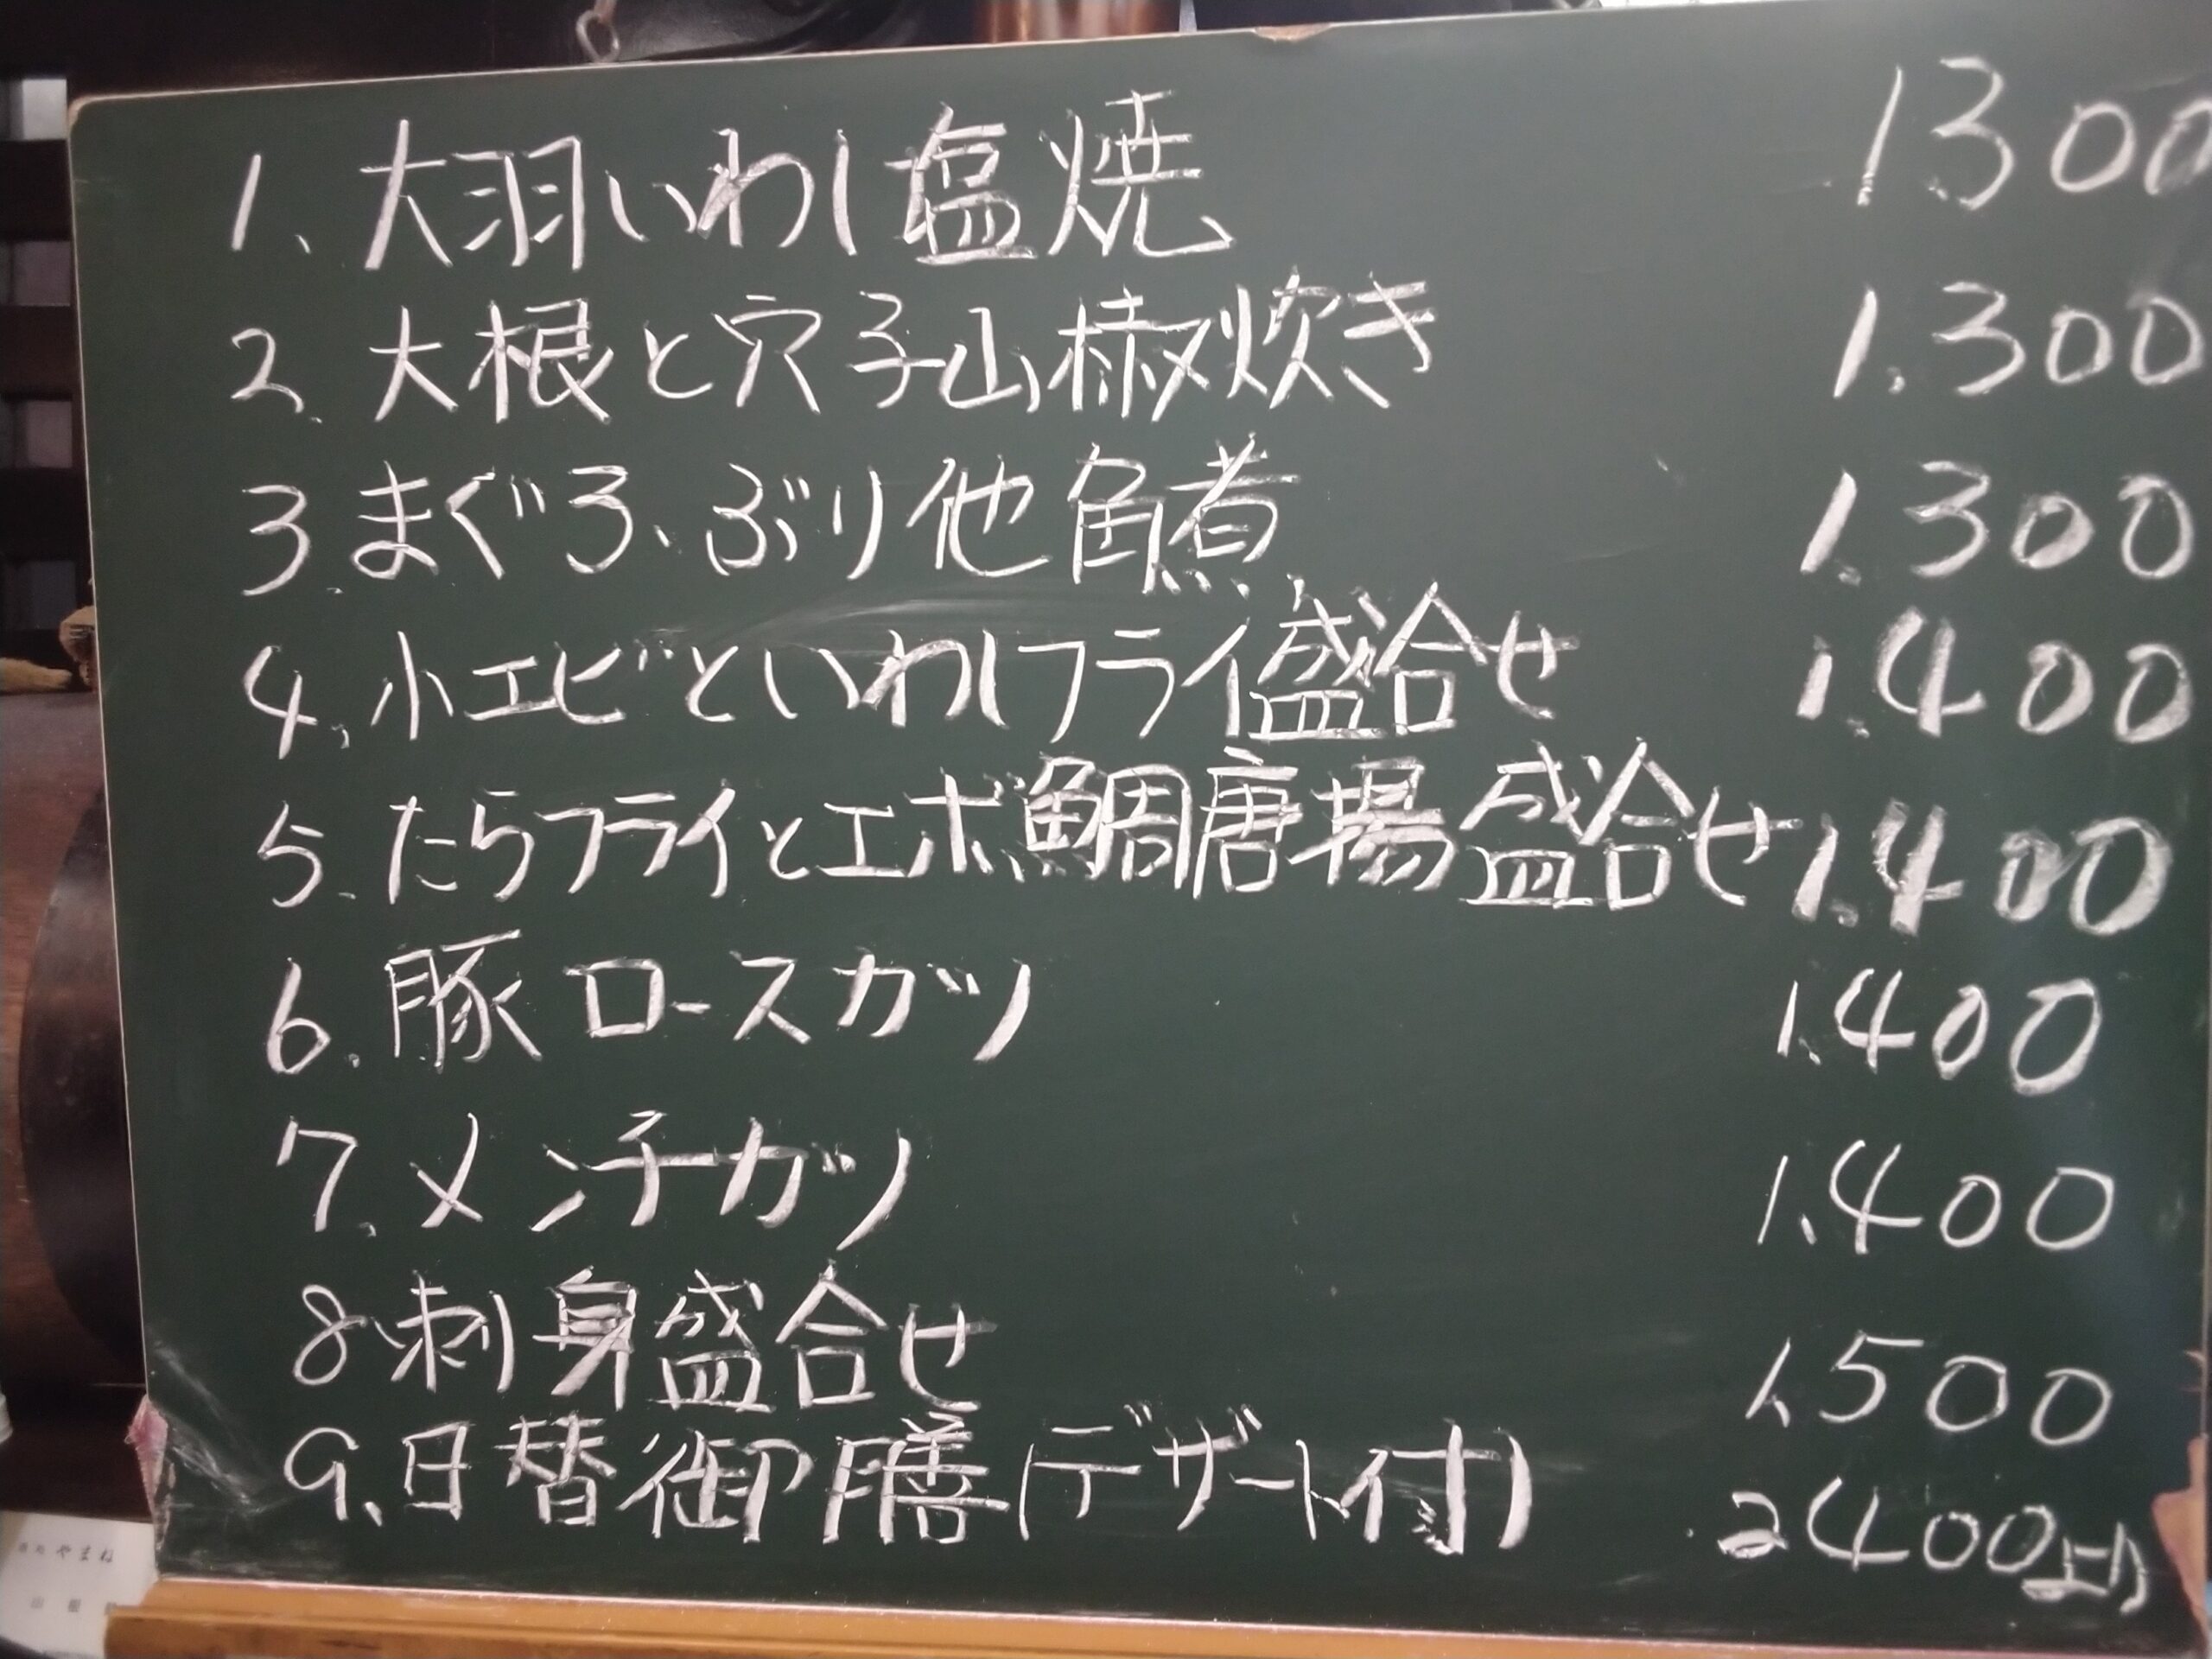 1、大羽いわし塩焼 1300
2、大根と穴子山椒炊き 1.300
3.まぐろ、ぶり他角煮 1.300
4.小エビといわしフライ盛合せ 1.400
5.たらフライとエボ鯛唐揚盛合せ 1.400
6.豚ロースカツ 1.400
7.メンチカツ 1.400
8、刺身盛合せ 1,500
9、日替御膳(デザート付) 2400より
やまね
山根